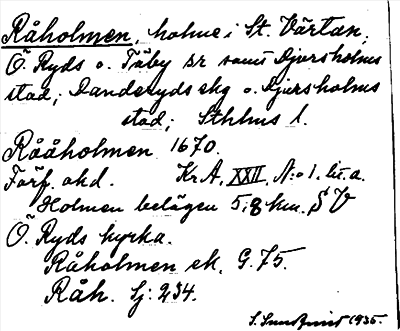 Råholmen, holme i St. Värtan,
Ö. Ryds o. Täby sr samt Djursholms
stad; Danderyds skg o. Djursholms
stad; Sthlms l.
Rååholmen 1670.
Förf. ohd. Kr.A. XXII, N:o 1. lit. a.
Holmen belägen 5,8 km. SV
Ö. Ryds kyrka.
Råholmen ek. G. 75.
Råh. Sj: 234.
S. Sundquist 1935.